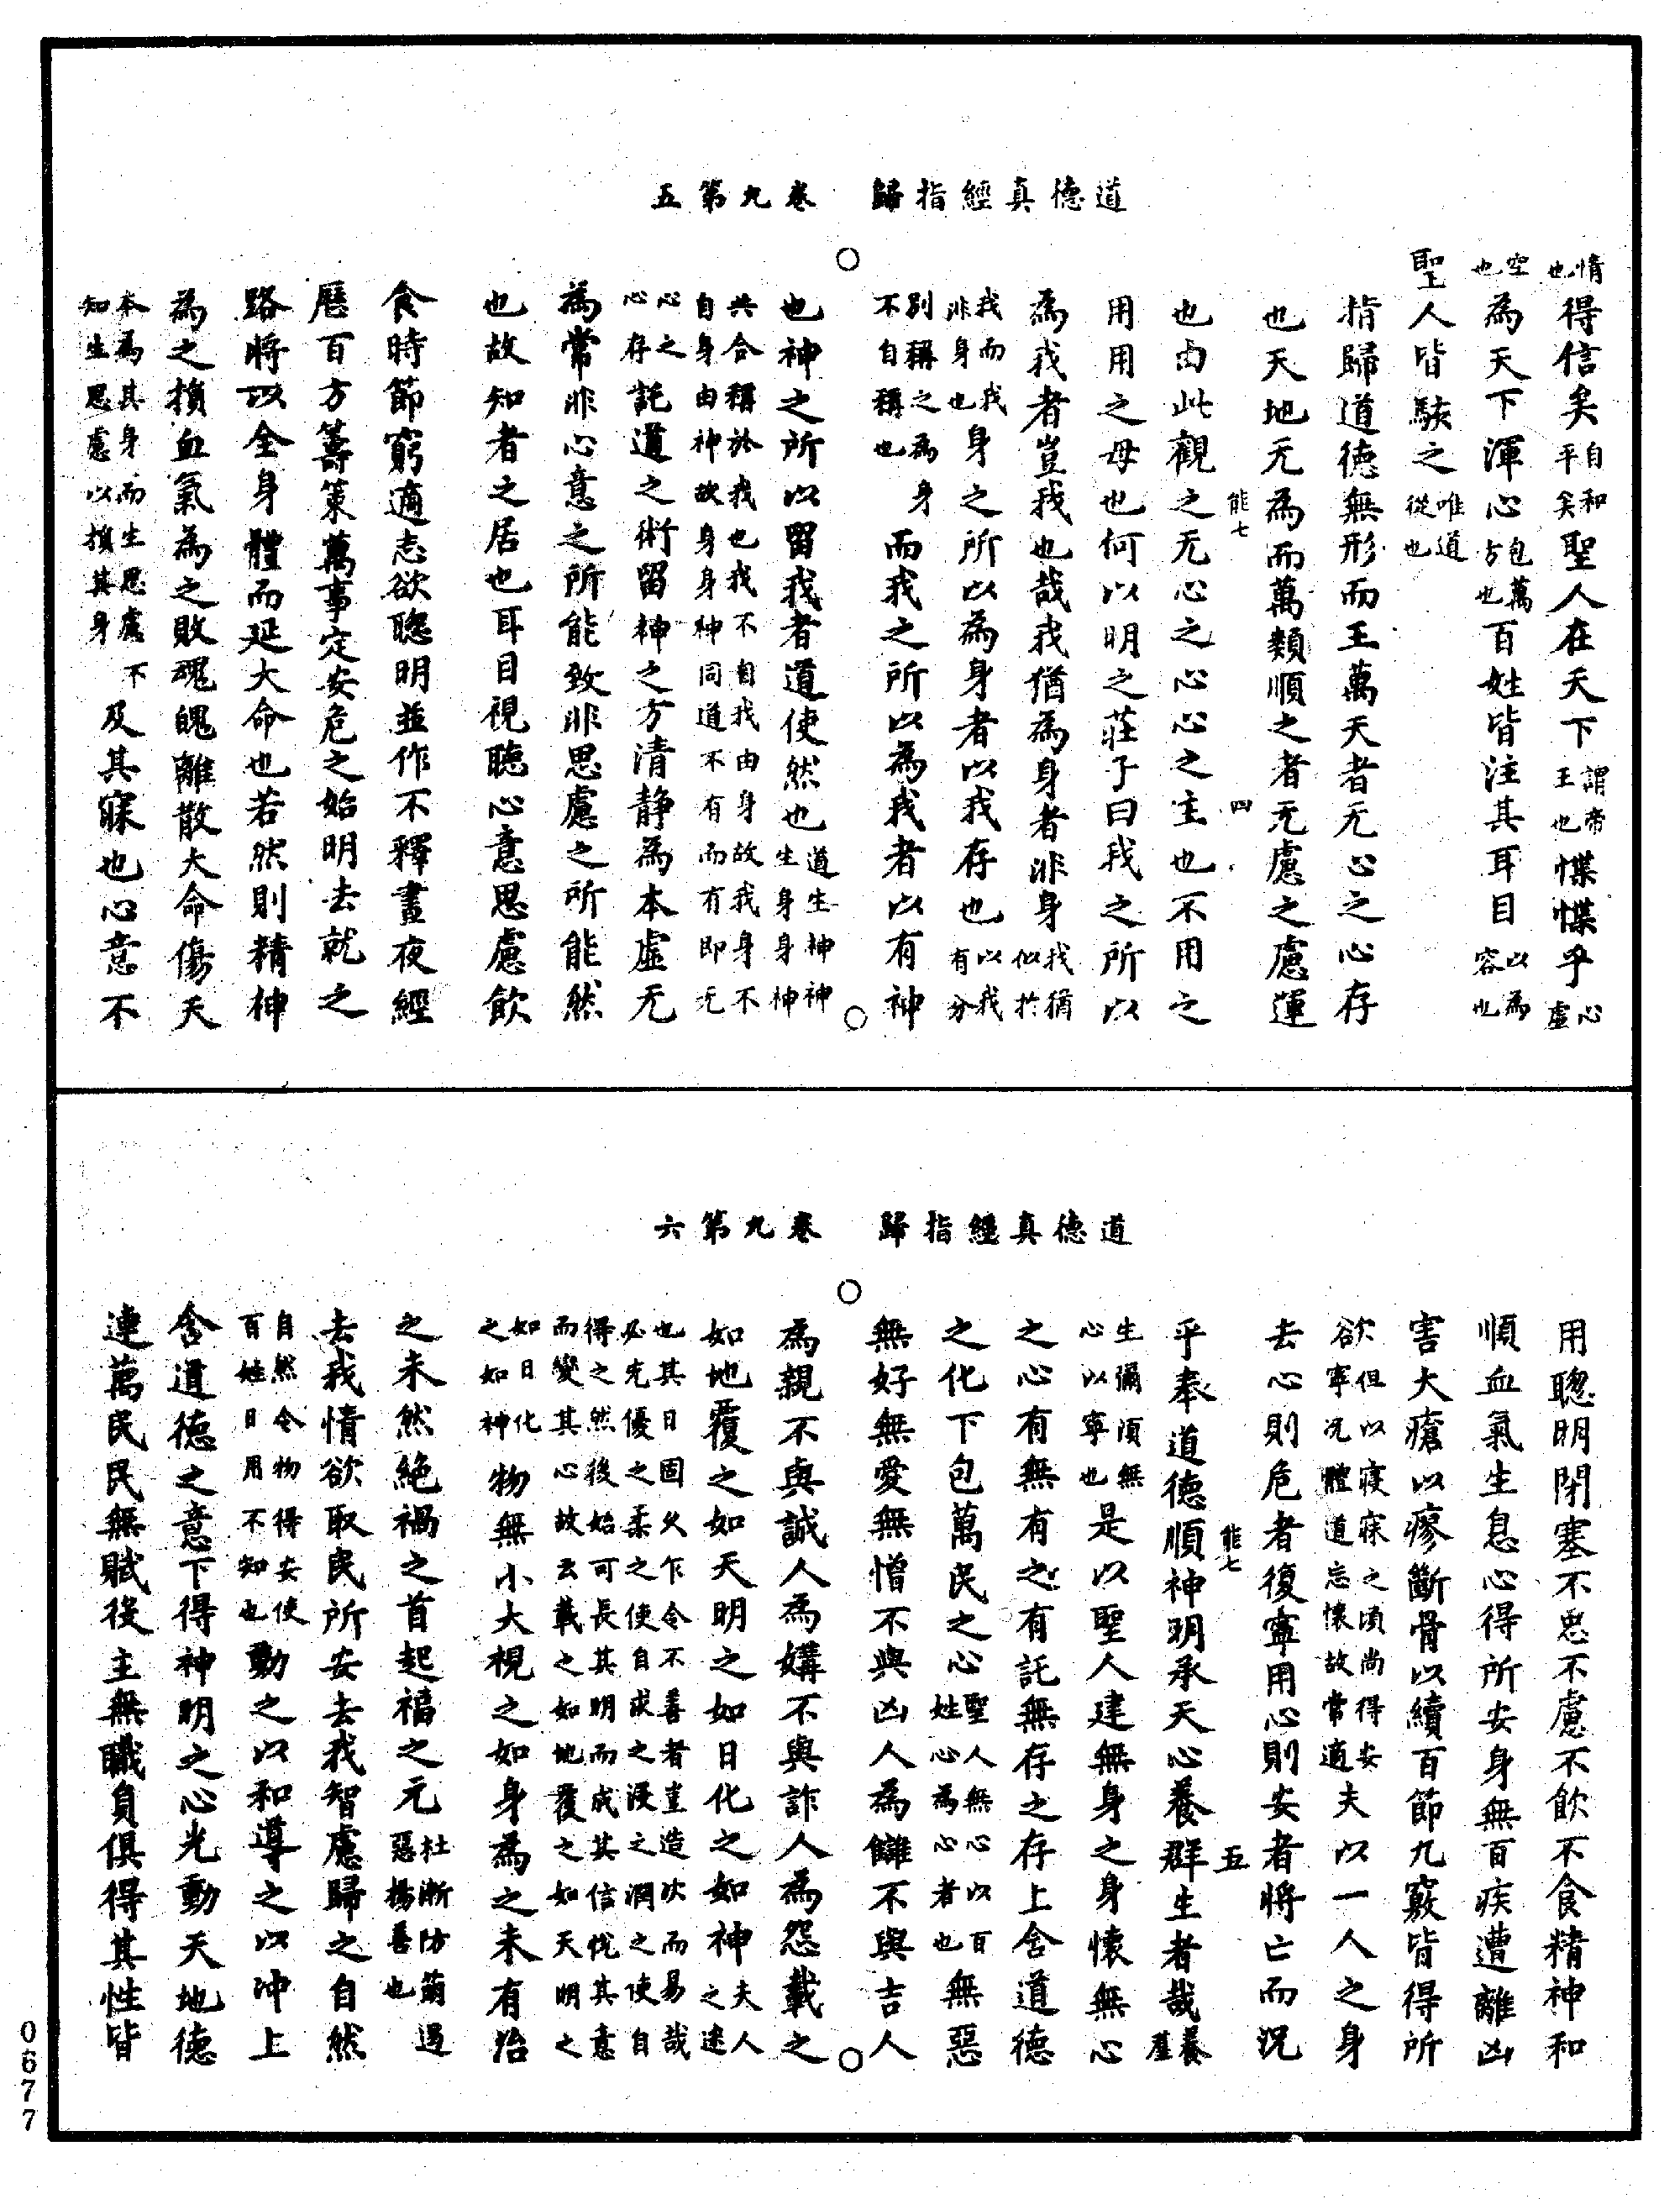 道德真經指歸　卷九第五
情也得信矣自和平矣聖人在天下謂帝王也惵惵乎心虛
空也為天下渾心包萬方也百姓皆注其耳目以為容也
聖人皆駭之唯道從也
指歸道德無形而王萬天者无心之心存
也天地无為而萬類順之者无慮之慮運
能七　四
也由此觀之无心之心心之主也不用之
用用之母也何以明之莊子曰我之所以
為我者豈我也哉我猶為身者非身我猶似於
我而我非身也身之所以為身者以我存也以我有分
別稱之為身不自稱也而我之所以為我者以有神
也神之所以留我者道使然也道生神神生身身神
共合稱於我也我不自我由身故我身不自身由神故身身神同道不有而有即无
心之心存託道之術留神之方清静為本虛无
為常非心意之所能致非思慮之所能然
也故知者之居也耳目視聽心意思慮飲
食時節窮適志欲聰明並作不釋晝夜經
歷百方籌策萬事定安危之始明去就之
路將以全身體而延大命也若然則精神
為之損血氣為之敗魂魄離散大命傷夭
本為其身而生思慮不知生思慮以損其身及其寐也心意不
道德真經指歸　卷九第六
用聰明閉塞不思不慮不飲不食精神和
順血氣生息心得所安身無百疾遭離凶
害大瘡以瘳斷骨以續百節九竅皆得所
欲但以寢寐之頃尚得安寧况體道忘懷故常適夫以一人之身
去心則危者復寧用心則安者將亡而况
能七　五
乎奉道德順神明承天心養群生者哉養羣
生彌須無心以寧也是以聖人建無身之身懷無心
之心有無有之有託無存之存上含道德
之化下包萬民之心聖人無心以百姓心為心者也無惡
無好無愛無憎不與凶人為讎不與吉人
為親不與誠人為媾不與詐人為怨載之
如地覆之如天明之如日化之如神夫人之迷
也其日固久乍令不善者豈造次而易哉必先優之柔之使自求之浸之潤之使自
得之然後始可長其明而成其信悅其意而變其心故云載之如地覆之如天明之
如日化之如神物無小大視之如身為之未有治
之未然絶禍之首起福之元杜漸防萠遏惡揚善也
去我情欲取民所安去我智慮歸之自然
自然令物得安使百姓日用不知也動之以和導之以冲上
含道德之意下得神明之心光動天地德
連萬民民無賦役主無職負俱得其性皆
0677